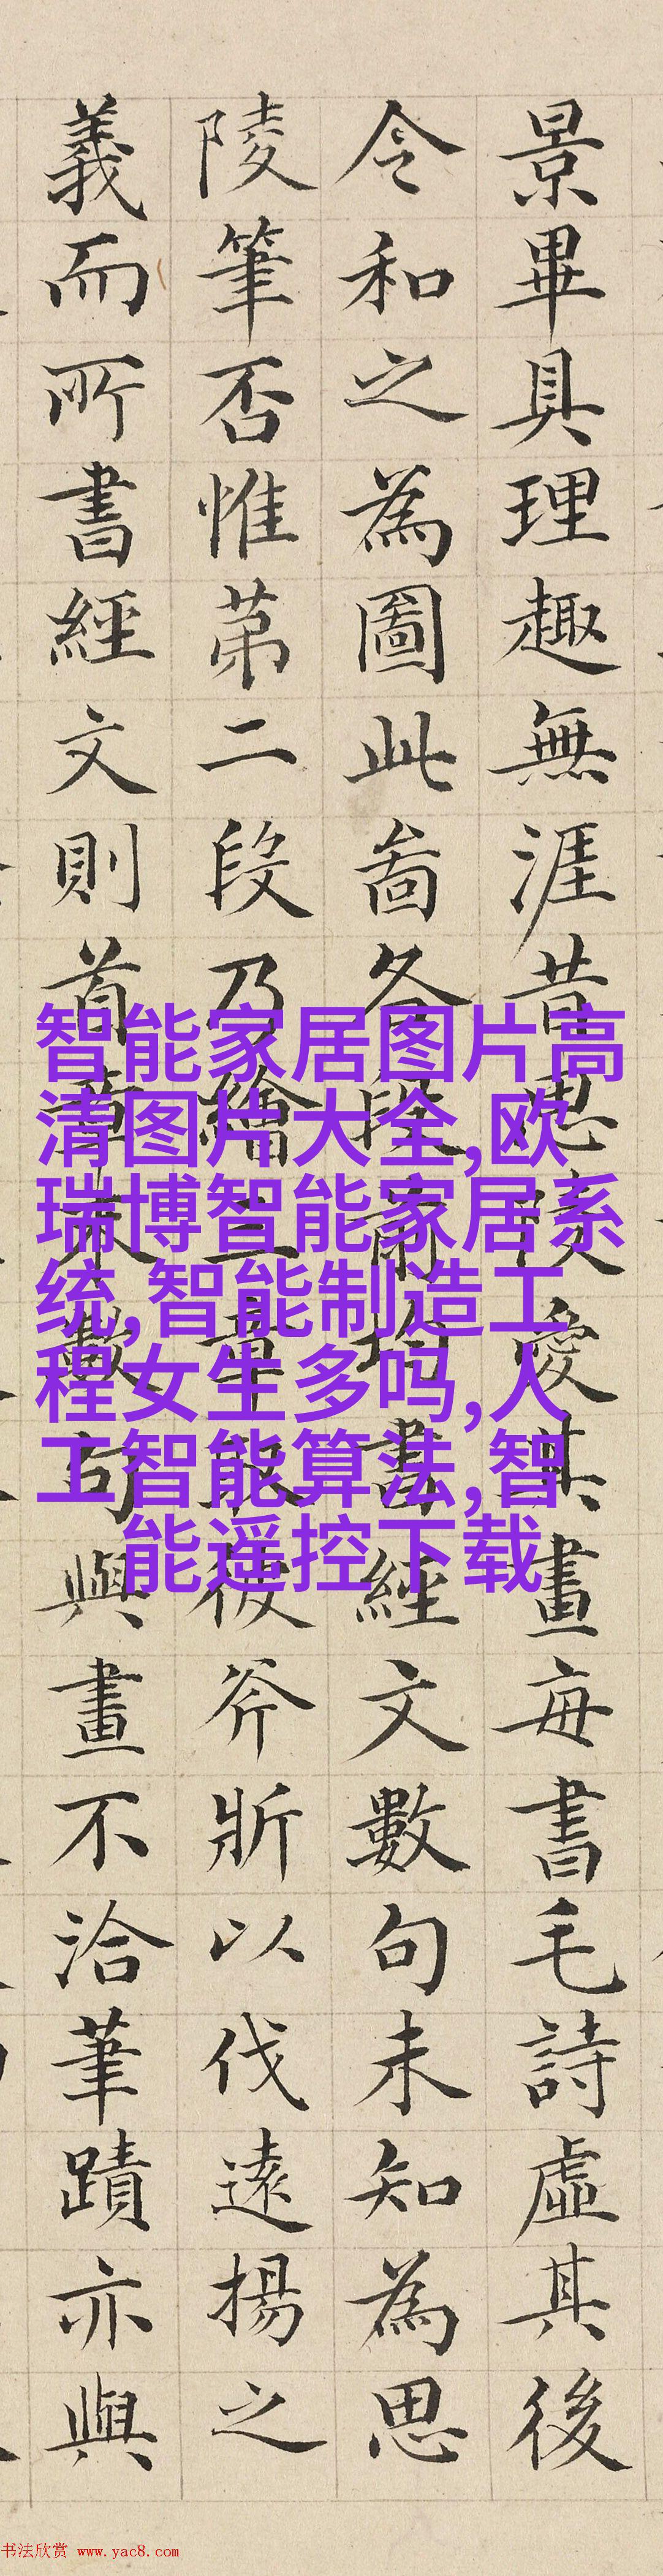 景畢具理趣無涯昔思陵愛其畫每書毛詩虛其後
令和之為圖此啚各段前均書經文數句未知為思
陵筆否惟苐二段乃繪二章取彼斧斨以伐遠揚之
義而所書經文則首章末數句與畫不洽筆蹟亦與
智能家居图片高
清图片大全,欧
瑞博智能家居系
统,智能制造工
程女生多吗,人
工智能算法,智
能遥控下载
书法欣赏 www.yac8.com